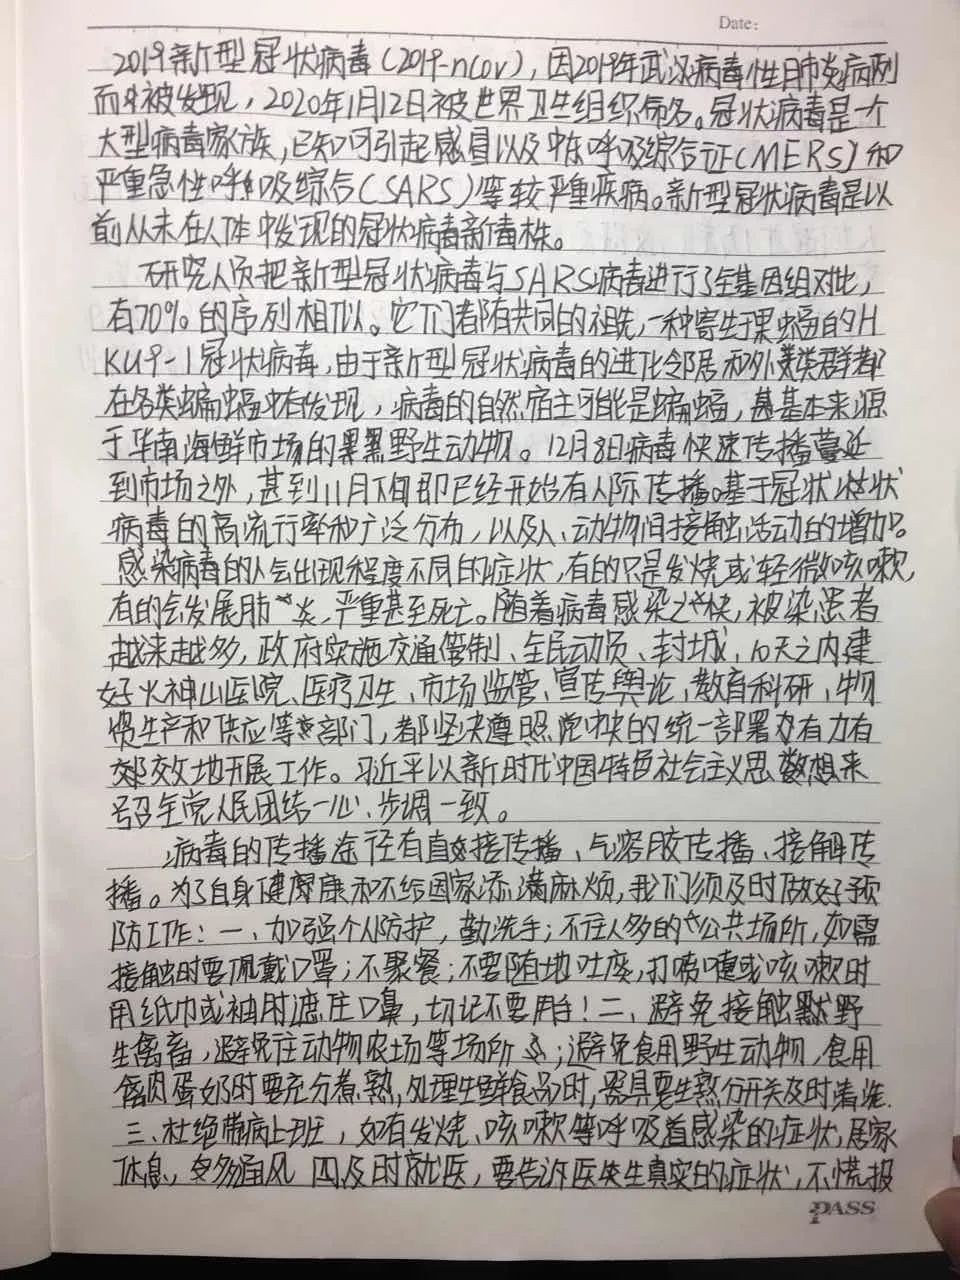 Date:
2019新型冠状病毒(2019-nCov),因2019年武汉病毒性肺炎病例
而被发现,2020年1月12日被世界卫生组织命名。冠状病毒是一个
大型病毒家族,已知可引起感冒以及中东呼吸综合证(MERS)和
严重急性呼吸综合(SARS)等较严重疾病。新型冠状病毒是以
前从未在人体中发现的冠状病毒新毒株。
研究人员把新型冠状病毒与SARS病毒进行了全基因组对比,
有70%的序列相似。它们都有共同的祖先,一种寄生于果蝠的H
KU9-1冠状病毒,由于新型冠状病毒的进化邻居和外类群都
在各类蝙蝠中有发现,病毒的自然宿主可能是蝙蝠,甚基本来源
于华南海鲜市场的野生动物。12月8日病毒快速传播蔓延
到市场之外,甚到11月下旬即已经开始有人际传播。基于冠状
病毒的高流行率和广泛分布,以及人、动物间接触活动的增加。
感染病毒的人会出现程度不同的症状,有的只是发烧或轻微咳嗽,
有的会发展肺炎,严重甚至死亡。随着病毒感染之快,被染患者
越来越多,政府实施交通管制、全民动员、封城、10天之内建
好火神山医院、医疗卫生、市场监管、宣传舆论、教育科研、物
资生产和供应等部门,都坚决遵照党中央的统一部署有力有
效地开展工作。习近平以新时代中国特色社会主义思想来
号召全党人民团结一心、步调一致。
病毒的传播途径有直接传播、气溶胶传播、接触传
播。为了自身健康和不给国家添满麻烦,我们须及时做好预
防工作:一、加强个人防护,勤洗手;不往人多的公共场所,如需
接触时要佩戴口罩;不聚餐;不要随地吐痰,打喷嚏或咳嗽时
用纸巾或袖肘遮住口鼻,切记不要用手!二、避免接触野
生禽畜,避免往动物农场等场所;避免食用野生动物,食用
禽肉蛋奶时要充分煮熟,处理生鲜食品时,器具要生熟分开及时清洗.
三、杜绝带病上班,如有发烧、咳嗽等呼吸道感染的症状,居家
休息,多通风 四及时就医,要告诉医生真实的症状,不慌报
PASS